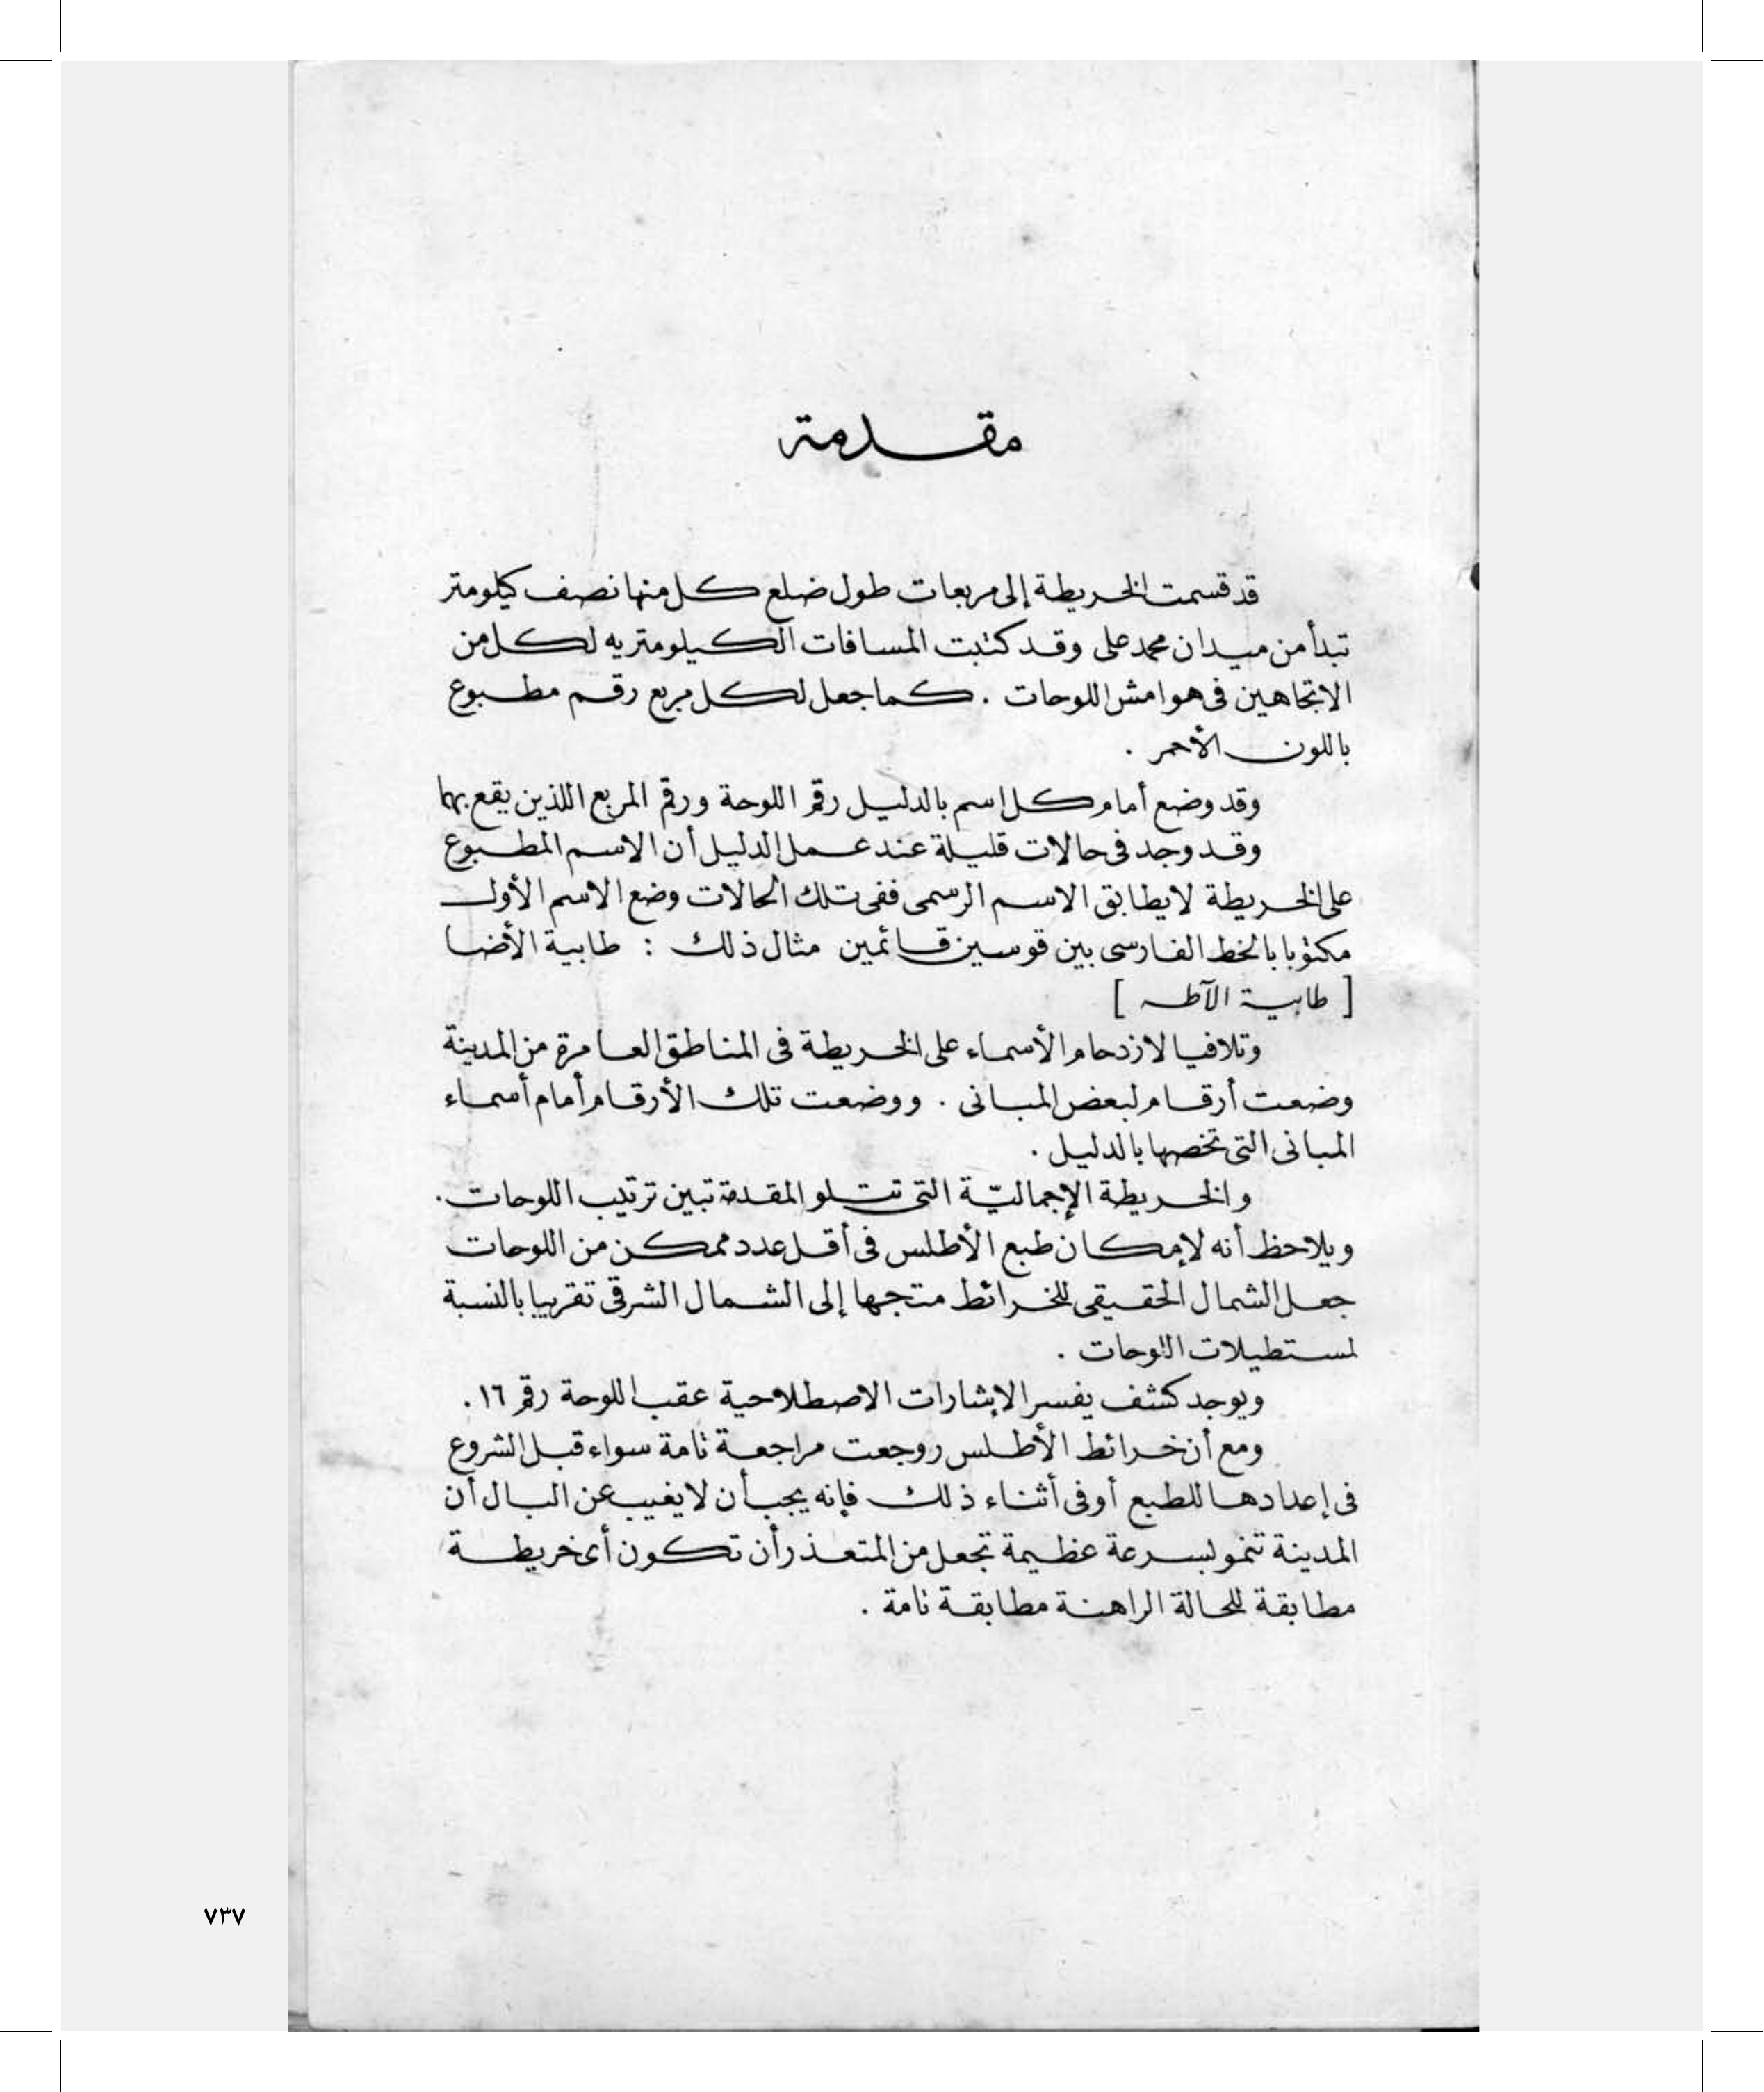 مقدمة
قد قسمت الخريطة إلى مربعات طول ضلع كل منها نصف كيلومتر
تبدأ من ميدان محمد على وقد كتبت المسافات الكيلومتريه لكل من
الاتجاهين فى هوامش اللوحات . كما جعل لكل مربع رقم مطبوع
باللون الأحمر .
وقد وضع أمام كل اسم بالدليل رقم اللوحة ورقم المربع اللذين يقع بهما
وقد وجد فى حالات قليلة عند عمل الدليل أن الاسم المطبوع
على الخريطة لا يطابق الاسم الرسمى ففى تلك الحالات وضع الاسم الأول
مكتوبا بالخط الفارسى بين قوسين قائمين مثال ذلك : طابية الأضا
[ طابية الآطه ]
وتلافيا لازدحام الأسماء على الخريطة فى المناطق العامرة من المدينة
وضعت أرقام لبعض المبانى . ووضعت تلك الأرقام أمام أسماء
المبانى التى تخصها بالدليل .
والخريطة الإجمالية التى تتلو المقدمة تبين ترتيب اللوحات .
ويلاحظ أنه لإمكان طبع الأطلس فى أقل عدد ممكن من اللوحات
جعل الشمال الحقيقى للخرائط متجها إلى الشمال الشرقى تقريبا بالنسبة
لمستطيلات اللوحات .
ويوجد كشف يفسر الإشارات الاصطلاحية عقب اللوحة رقم ١٦ .
ومع أن خرائط الأطلس روجعت مراجعة تامة سواء قبل الشروع
فى إعدادها للطبع أو فى أثناء ذلك فإنه يجب أن لا يغيب عن البال أن
المدينة تنمو بسرعة عظيمة تجعل من المتعذر أن تكون أى خريطة
مطابقة للحالة الراهنة مطابقة تامة .
٧٣٧